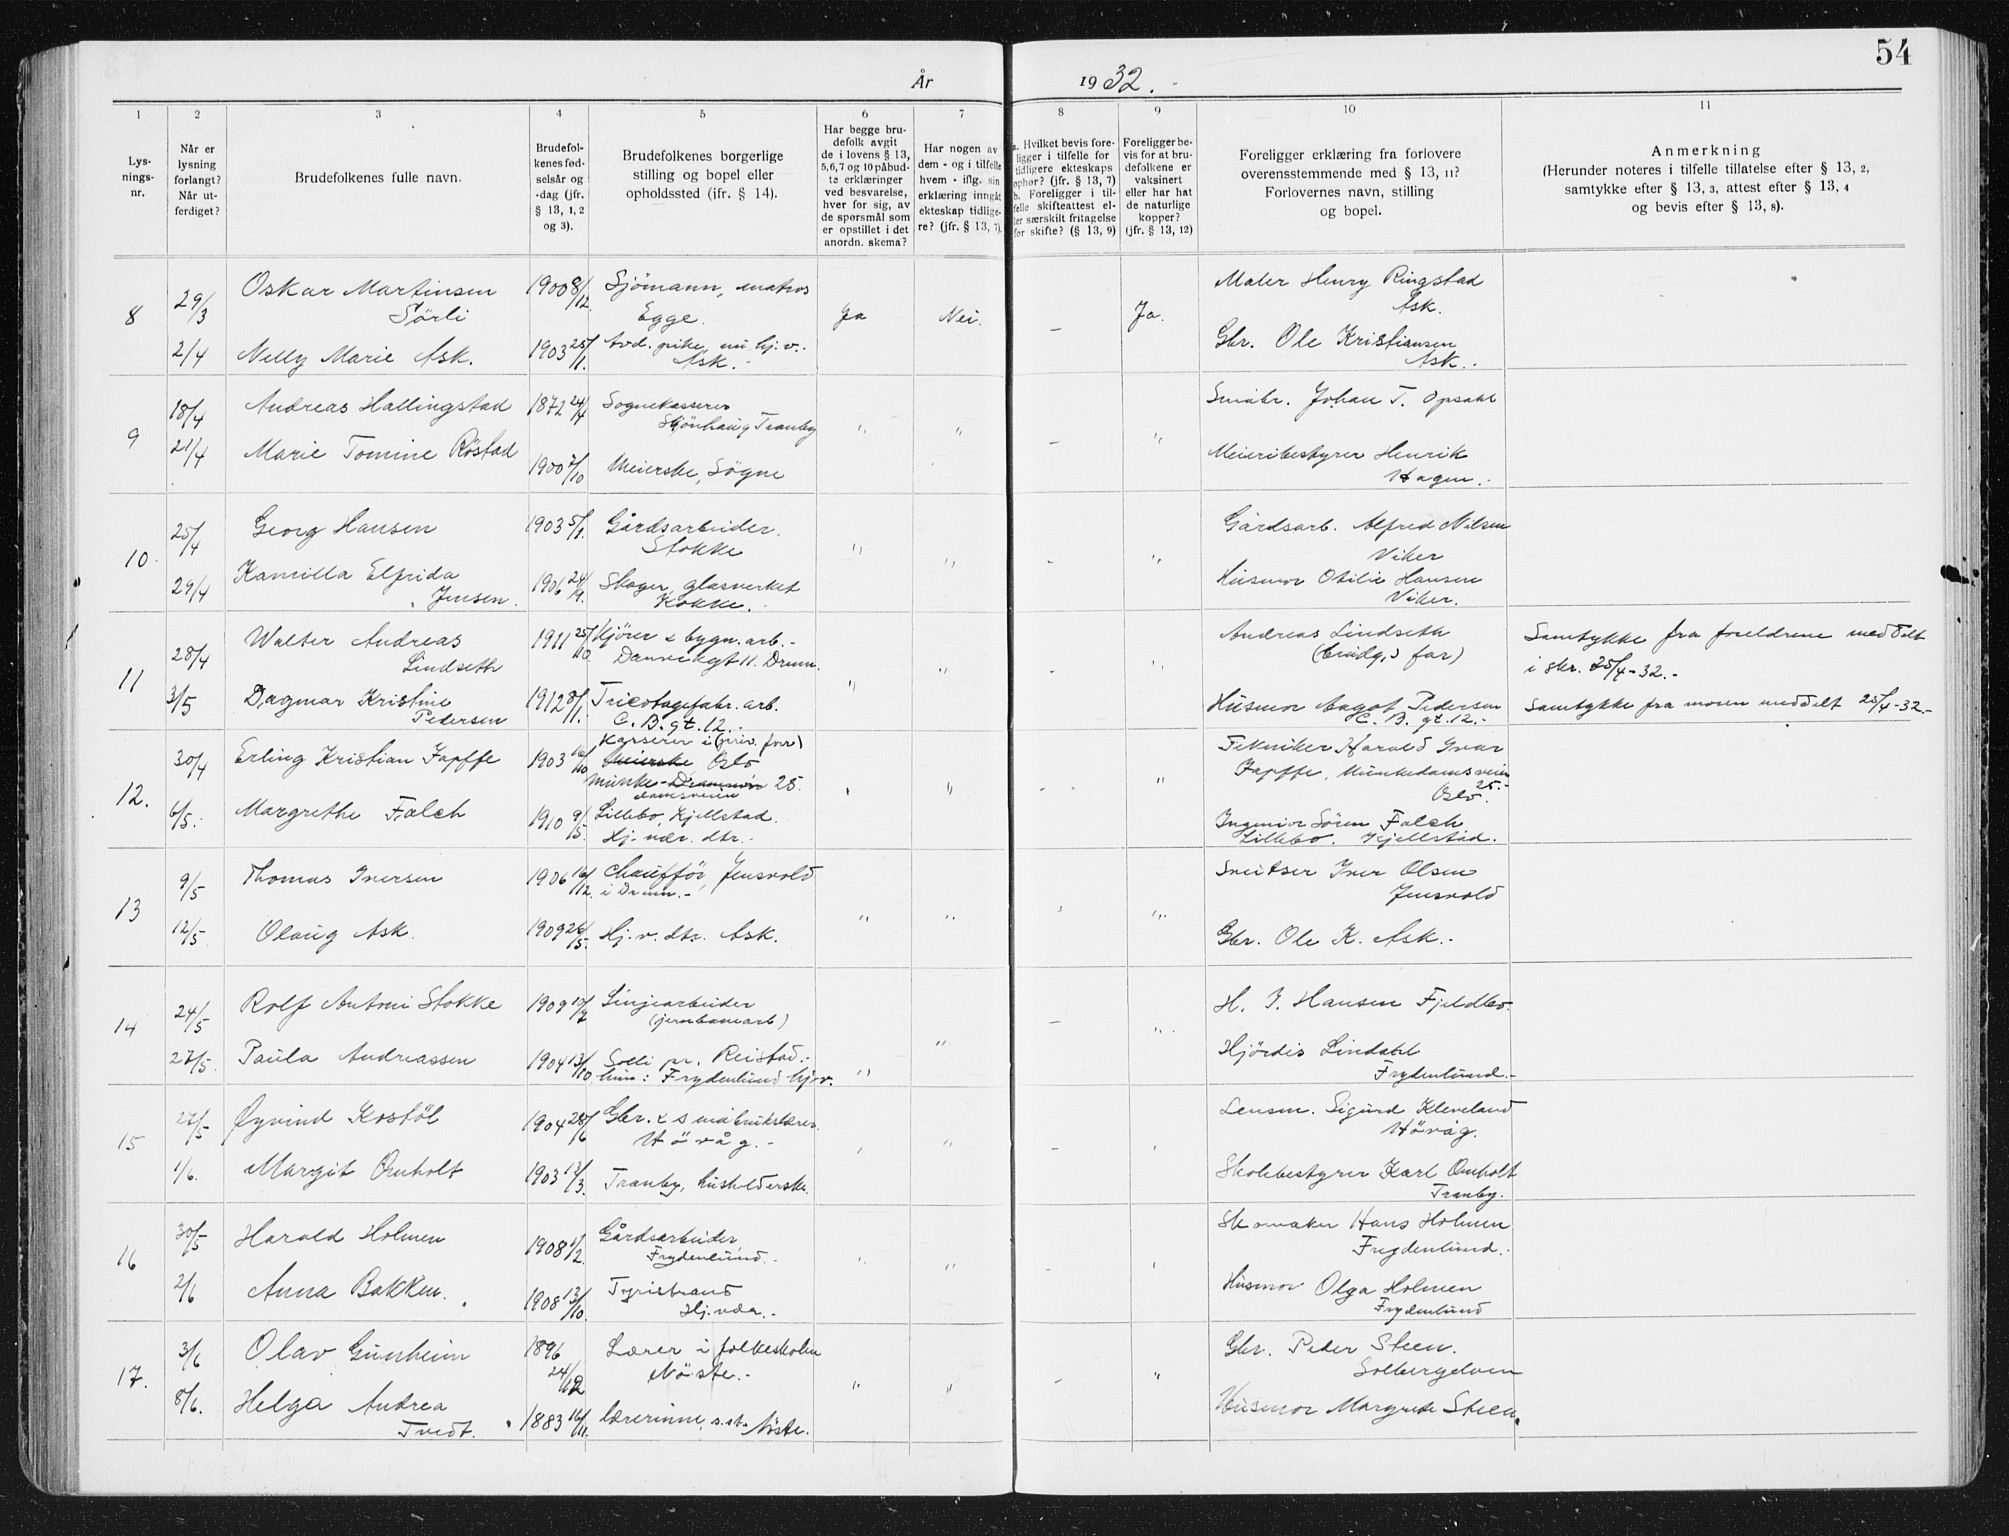 54
År 1932.
1
2
3
4
5
6
7
8
9
10
11
Lys-
nings-
nr.
Når er
lysning
forlangt?
Når ut-
ferdiget?
Brudefolkenes fulle navn.
Brudefol-
kenes fød-
selsår og
-dag (jfr.
§ 13, 1, 2
og 3).
Brudefolkenes borgerlige
stilling og bopel eller
opholdssted (jfr. § 14).
Har begge bru-
defolk avgit
de i lovens § 13,
5,6,7 og 10 påbud-
te erklæringer
ved besvarelse,
hver for sig, av
de spørsmål som
er opstillet i det
anordn. skema?
Har nogen av
dem - og i tilfelle
hvem - iflg. sin
erklæring inngåt
ekteskap tidlige-
re? (jfr. § 13, 7).
a. Hvilket bevis fore-
ligger i tilfelle for
tidligere ekteskaps
ophør? (jfr. § 13, 7)
b. Foreligger i til-
felle skifteattest el-
ler særskilt fritagelse
for skifte? (§ 13, 9)
Foreligger be-
vis for at bru-
defolkene er
vaksinert
eller har hat
de naturlige
kopper?
(jfr. § 13, 12)
Foreligger erklæring fra forlovere
overensstemmende med § 13, 11?
Forlovernes navn, stilling
og bopel.
Anmerkning
(Herunder noteres i tilfelle tillatelse efter § 13, 2,
samtykke efter § 13, 3, attest efter § 13, 4
og bevis efter § 13, 8).
8
29/3
Oskar Martinsen
Sörli
1900 8/12
Sjömann, matros
Egge.
Ja
Nei.
—
Ja.
Maler Henry Ringstad
Ask.
2/4
Nelly Marie Ask.
1903 25/1.
Avd. pike, nu hj. v.
Ask.
Gbr. Ole Kristiansen
Ask.
9
18/4
Andreas Hallingstad
1872 24/4
Sognekasserer
Skjönhaug Tranby
"
"
—
"
Småbr. Johan T. Opsahl
21/4
Marie Tomine Röstad
1900 7/10
Meierske, Sögne
Meieribestyrer Henrik
Hagen.
10.
25/4
Georg Hansen
1903 5/1.
Gårdsarbeider.
Stokke
"
"
-
"
Gårdsarb. Alfred Nilsen
Viker
29/4
Kamilla Elfrida
Jensen.
1906 24/9.
Skoger, glasverket
Kokke.
Husmor Otilie Hansen
Viker.
11
28/4
Walter Andreas
Lindseth
1911 25/10.
Kjörer & bygn. arb.
Danvikgt 11. Dramn.
"
"
-
"
Andreas Lindseth
(brudg.s far)
Samtykke fra foreldrene meddelt
i skr. 25/4-32.-
3/5
Dagmar Kristine
Pedersen
1912 8/1.
Tricotagefabr. arb.
C. B. gt. 12.-
Husmor Aagot Pedersen
C. B. gt. 12.-
Samtykke fra moren meddelt 25/4-32.-
12.
30/4
Erling Kristian Japffe
1903 16/10
Kasserer i (priv. forr)
Meierske Oslo
Munke-Drammsv 25.
damsveien
"
-
"
Tekniker Harald Ivar
Japffe, Munkedamsveien
25.-
Oslo.
6/5.
Margrethe Falch
1910 9/5.
Lillebo, Kjellstad.
Hj. vær. dtr.
Ingeniör Sören Falch
Lillebo. Kjellstad.
13
9/5
Thomas Iversen
1906 16/12.
Chaufför, Jensvold
i Dramn.-
"
"
"
Sveitser Iver Olsen
Jensvold
12/5.
Olaug Ask.
1909 26/5.
Hj. v. dtr. Ask.
Gbr. Ole K. Ask.-
14
24/5
Rolf Antoni Stokke
1909 19/2
Linjearbeider
(jernbanearb)
"
"
—
"
H. J. Hansen Fjeldbo.
27/5.
Paula Andreassen
1904 13/10
Solli pr. Reistad.-
hun: Frydenlund hj. v.
Hjördis Lindahl
Frydenlund.-
15
27/5
Öyvind Kostöl
1904 28/6
Gbr. & småbrukslærer.
Hövåg.-
"
-
Lensm. Sigurd Kleveland
Hövåg.
1/6.
Margit Omholt
1903 13/3.
Tranby, husholderske.
Skolebestyrer Karl Omholt
Tranby.
16
30/5
Harald Holmen
1908 1/2.
Gårdsarbeider
Frydenlund.-
"
-
Skomaker Hans Holmen
Frydenlund.
2/6
Anna Bakken.
1908 13/10.
Tyristrand
Hj. vda.-
Husmor Olga Holmen
Frydenlund
17.
3/6
Olav Gunheim
1896
24/12
Lærer i folkeskolen
Nöste.-
"
"
-
"
Gbr. Peder Steen.
Solbergelven
8/6.
Helga Andrea
Tvedt.
1883 16/11.
lærerinne, s. st. Nöste.
Husmor Margrete Steen.